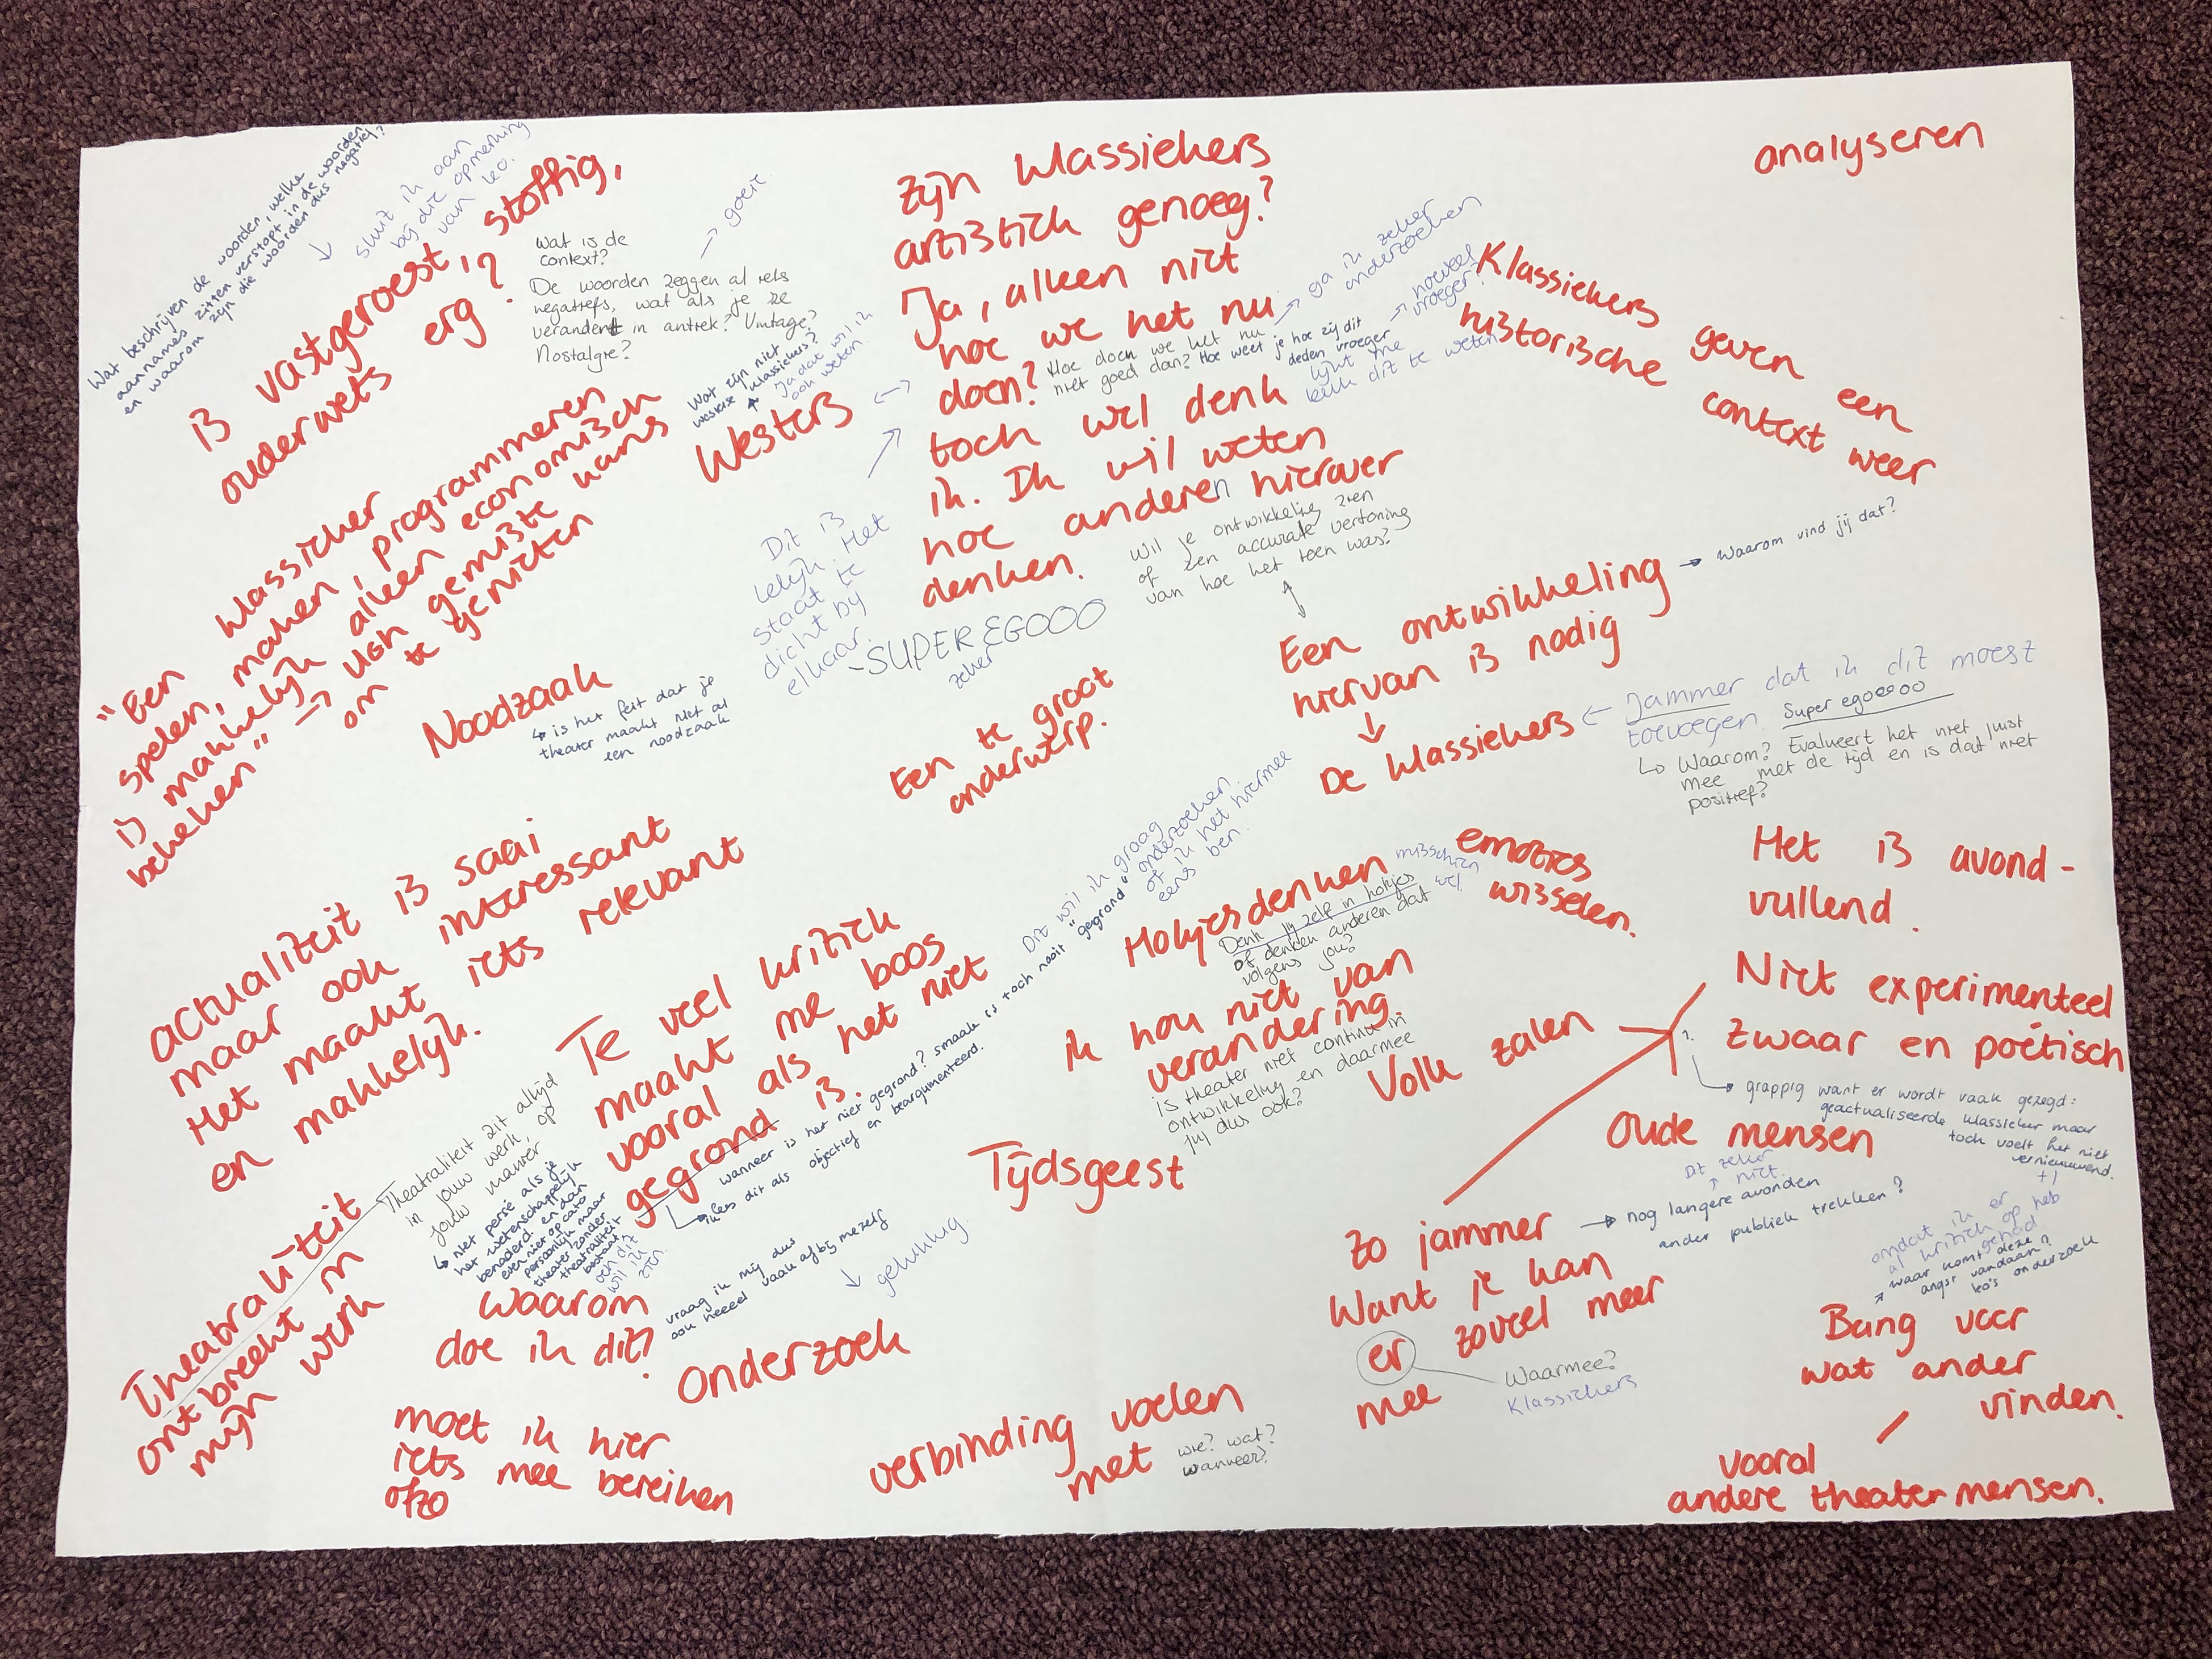 Wat beschrijven de woorden, welke
aannames zitten verstopt in de woorden
en waarom zijn die woorden dus negatief?
sluit ik aan
bij die opmerking
van Leo.
is vastgeroest, stoffig,
ouderwets erg?
Wat is de
context?
De woorden zeggen al iets
negatiefs, wat als je ze
verandert in antiek? Vintage?
Nostalgie?
goeie
zijn klassiekers
artistiek genoeg?
Ja, alleen niet
hoe we het nu
doen?
toch wel denk
ik. Ik wil weten
hoe anderen hierover
denken.
Hoe doen we het nu
niet goed dan? Hoe weet je hoe zij dit
deden vroeger
ga ik zeker
onderzoeken
hoeveel
vroeger?
lijkt me
leuk dit te weten
analyseren
Klassiekers geven een
historische context weer
Wat zijn niet
westerse klassiekers?
Ja dat wil ik
ook weten.
Westers
"Een klassieker
spelen, maken, programmeren
is makkelijk alleen economisch
bekeken" → van gemiste kans
om te genieten
Dit is
lelijk. Het
staat te
dicht bij
elkaar.
-SUPER EGOOO
zeker
Wil je ontwikkeling zien
of een accurate vertoning
van hoe het toen was?
Een ontwikkeling
hiervan is nodig
→ waarom vind jij dat?
De klassiekers
Jammer dat ik dit moest
toevoegen. Super egooooo
Waarom? Evalueert het niet juist
mee met de tijd en is dat niet
positief?
Noodzaak
is het feit dat je
theater maakt niet al
een noodzaak
Een te groot
onderwerp.
actualiteit is saai
maar ook interessant
Het maakt iets relevant
en makkelijk.
Te veel kritiek
maakt me boos
vooral als het niet
gegrond is.
wanneer is het niet gegrond? smaak is toch nooit "gegrond"
lees dit als objectief en beargumenteerd.
Dit wil ik graag
onderzoeken
of ik het hiermee
eens ben.
Hokjesdenken
misschien
wel.
Denk jij zelf in hokjes
of denken anderen dat
volgens jou?
emoties
wisselen.
Het is avond-
vullend.
ik hou niet van
verandering.
is theater niet continu in
ontwikkeling en daarmee
jij dus ook?
Volk zalen
Niet experimenteel
zwaar en poëtisch
?
grappig want er wordt vaak gezegd:
geactualiseerde klassieker maar
toch voelt het niet
vernieuwend.
+1
Oude mensen
Dit zeker
niet.
Tijdsgeest
Theatraliteit
ontbreekt in
mijn werk
Theatraliteit zit altijd
in jouw werk, op
jouw manier
niet persé als je
het wetenschappelijk
benaderd en dan
even niet op cato
persoonlijk maar
theater zonder
theatraliteit
bestaat
ooh dit
wil ik
zien.
waarom
doe ik dit?
vraag ik mij dus
ook heeeel vaak af bij mezelf
gelukkig.
onderzoek
moet ik hier
iets mee bereiken
ofzo
verbinding voelen
met
wie? wat?
wanneer?
Zo jammer
Want je kan
er zoveel meer
mee
→ nog langere avonden
ander publiek trekken?
Waarmee?
Klassiekers
omdat ik er
al kritiek op heb
gehad
waar komt deze
angst vandaan?
Leo's onderzoek
Bang voor
wat ander
vinden.
vooral
andere theatermensen.